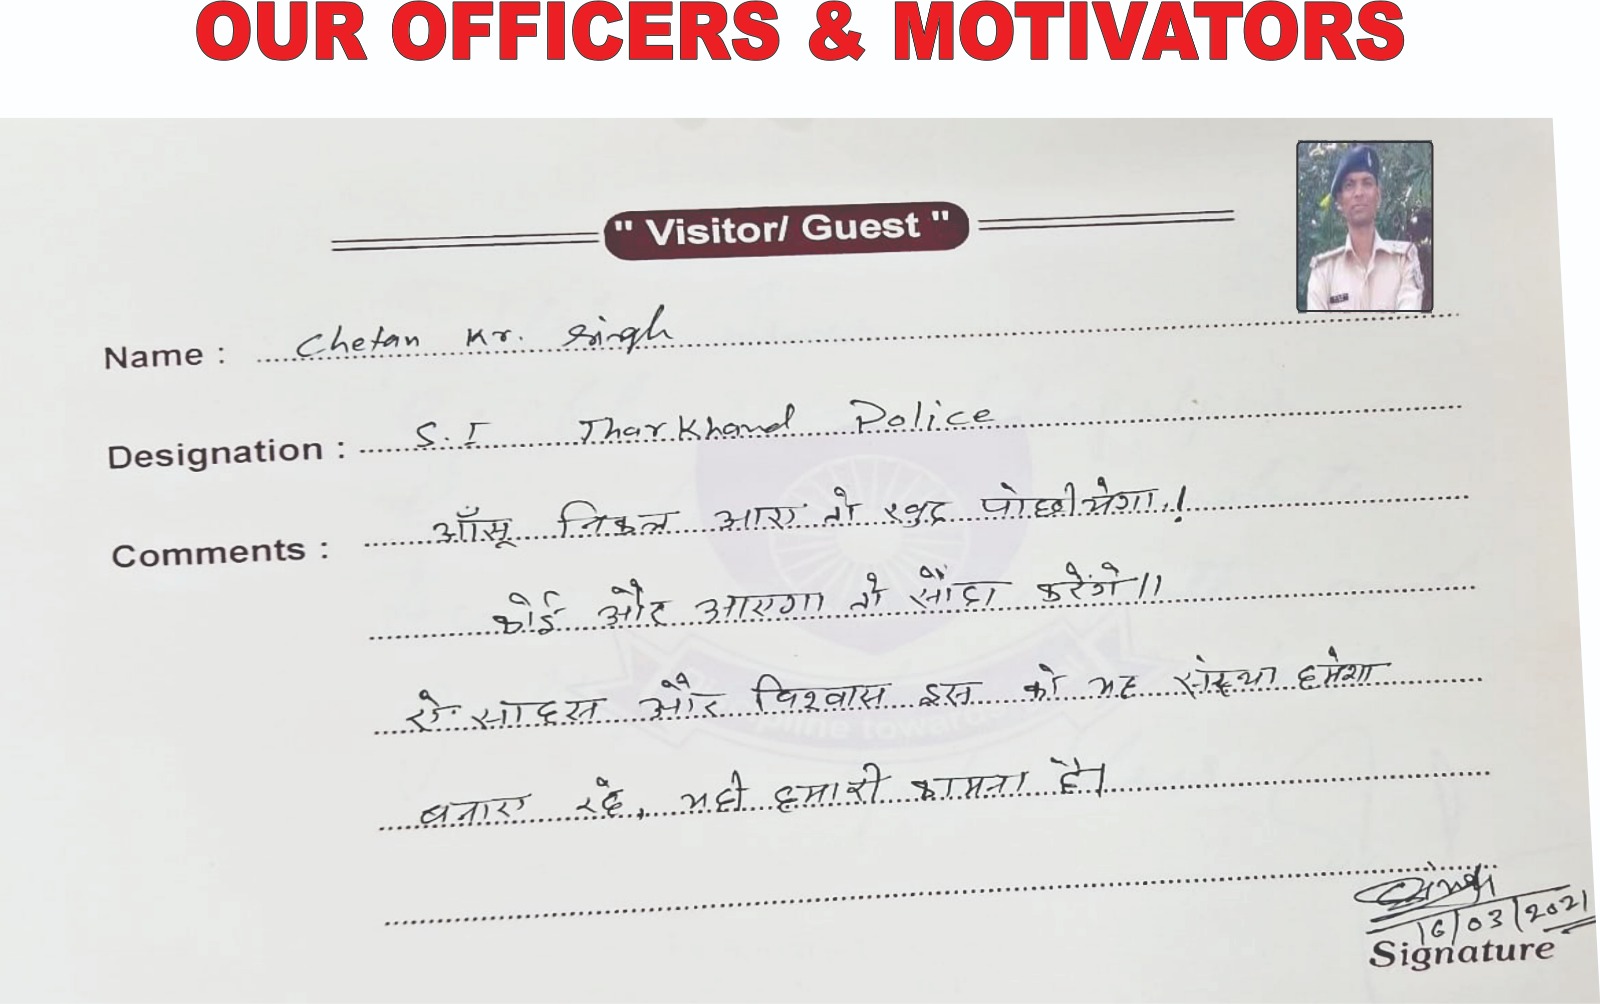 OUR OFFICERS & MOTIVATORS
" Visitor/ Guest "
Name : Chetan Kr. Singh
Designation : S.I Jharkhand Police
Comments : आँसू निकल आए तो खुद पोछीयेगा !
कोई और आएगा तो सौदा करेंगे ।।
साहस और विश्वास इस को यह संस्था हमेशा
बनाए रखे, यही हमारी कामना है।
pline towards
Singh
16/03/2021
Signature